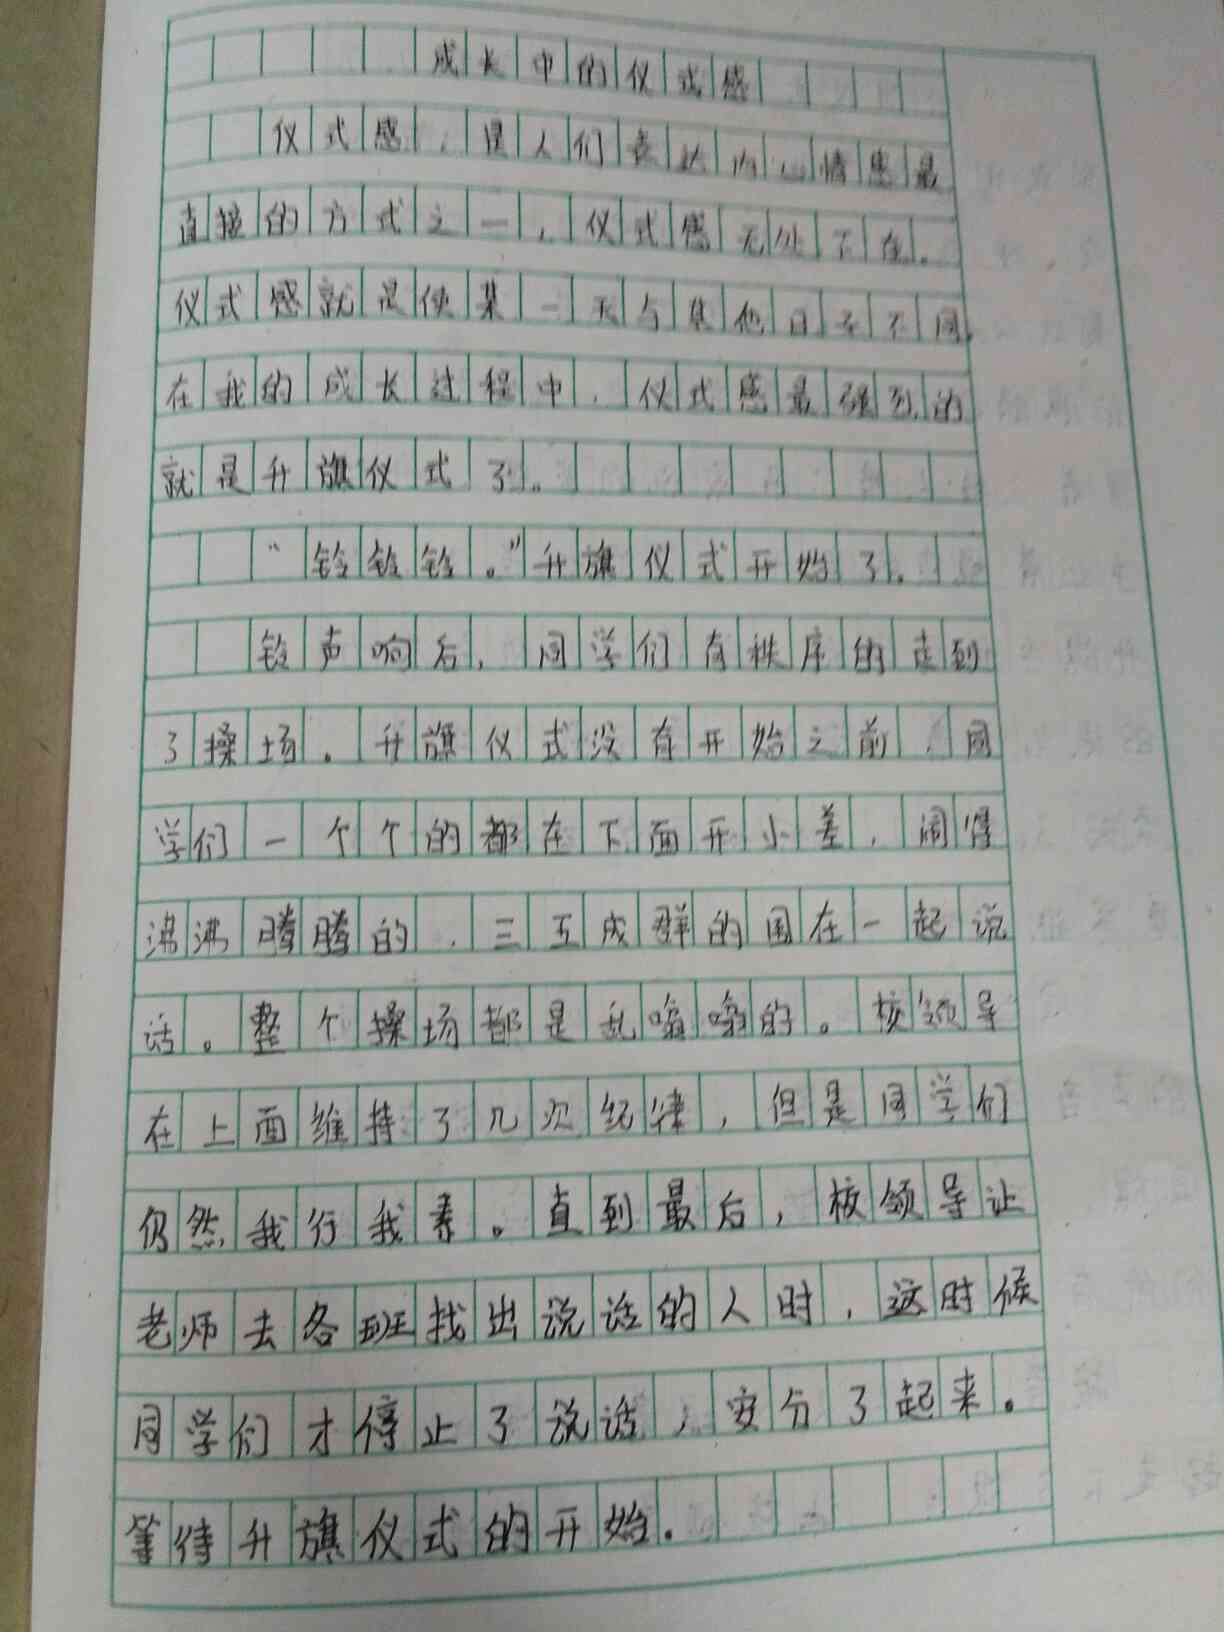 成长中的仪式感
仪式感，是人们表达内心情感最
直接的方式之一，仪式感无处不在。
仪式感就是使某一天与其他日子不同，
在我的成长过程中，仪式感最强烈的
就是升旗仪式了。
“铃铃铃。”升旗仪式开始了。
铃声响后，同学们有秩序的走到
了操场。升旗仪式没有开始之前，同
学们一个个的都在下面开小差，闹得
沸沸腾腾的，三五成群的围在一起说
话。整个操场都是乱嗡嗡的。校领导
在上面维持了几次纪律，但是同学们
仍然我行我素。直到最后，校领导让
老师去各班找出说话的人时，这时候
同学们才停止了说话，安分了起来。
等待升旗仪式的开始.